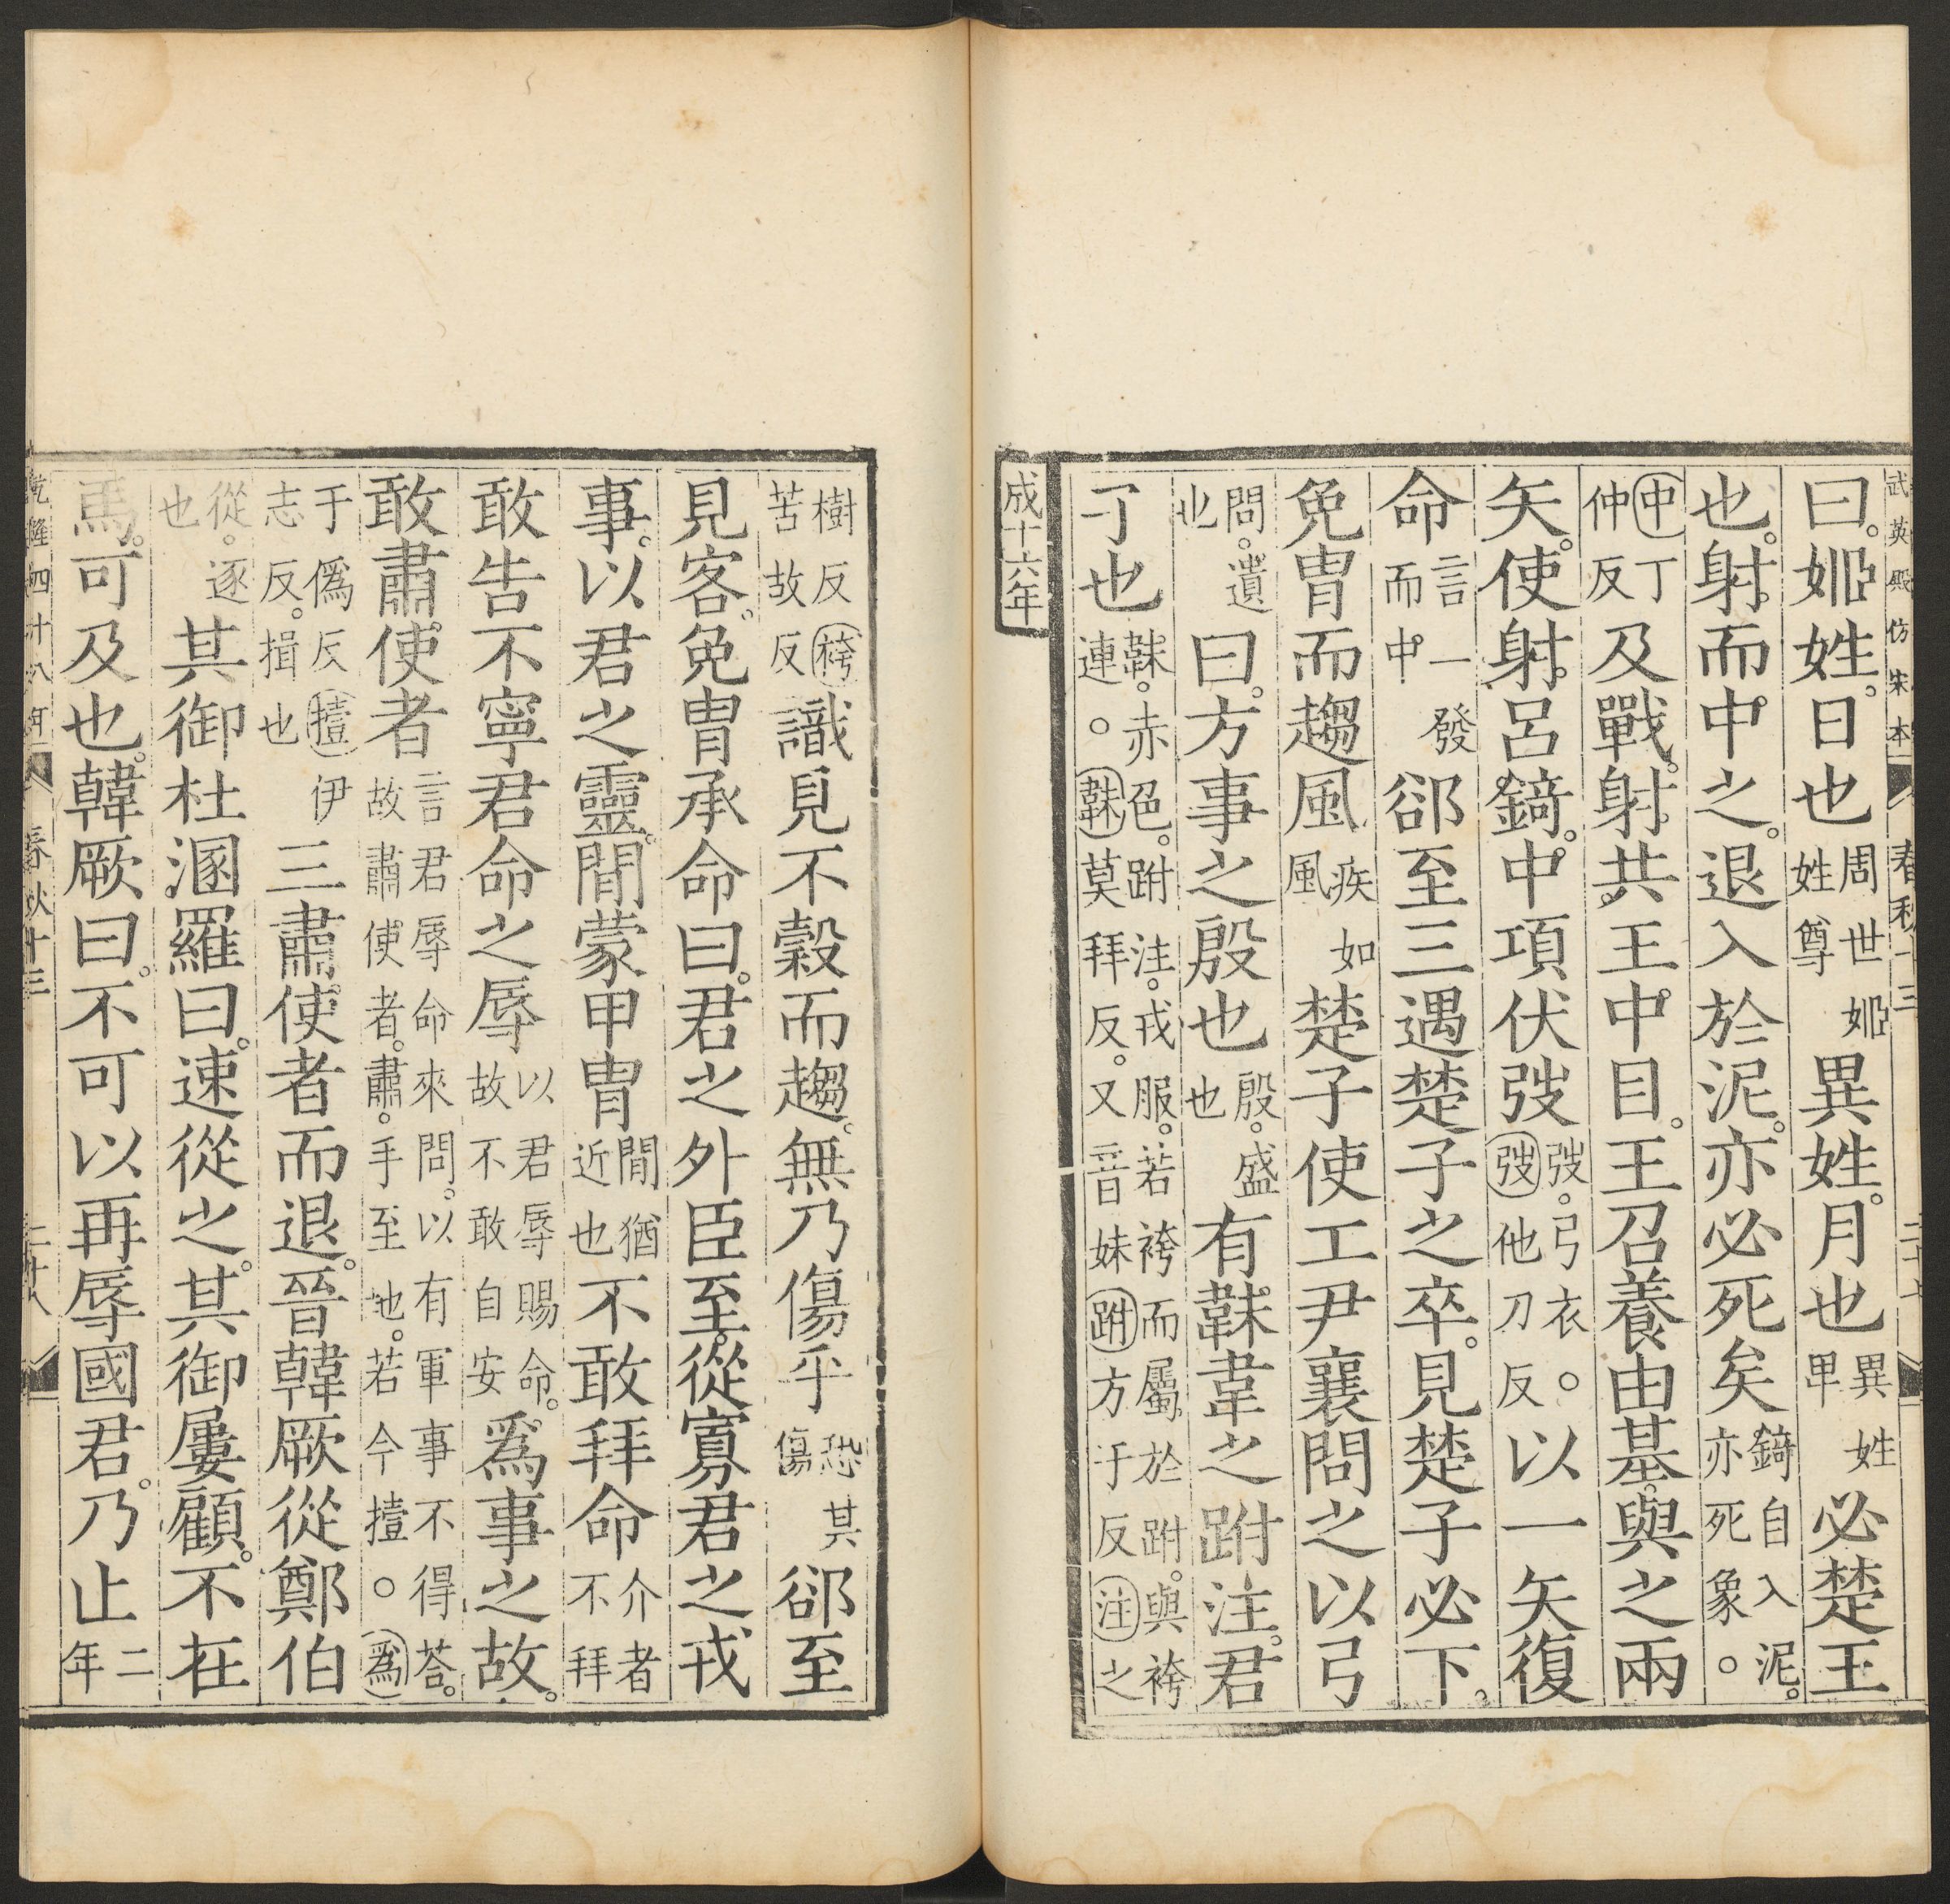 武英殿仿宋本 春秋十三 二十七
曰。姬姓。日也周世姬姓尊異姓。月也異姓卑必楚王
也。射而中之。退入於泥。亦必死矣錡自入泥。亦死象○
中丁仲反及戰。射共王中目。王召養由基。與之兩
矢。使射呂錡。中項伏弢弢。弓衣。○弢他刀反以一矢復
命言一發而中郤至三遇楚子之卒。見楚子必下。
免冑而趨風疾如風楚子使工尹襄問之以弓
問。遺也曰。方事之殷也殷。盛也有韎韋之跗注。君
子也韎。赤色。跗注。戎服。若袴而屬於跗。與袴連。○韎莫拜反。又音妹跗方于反注之
成十六年
樹反袴苦故反識見不穀而趨。無乃傷乎恐其傷郤至
見客。免冑承命曰。君之外臣至。從寡君之戎
事。以君之靈。閒蒙甲冑閒猶近也不敢拜命介者不拜
敢告不寧君命之辱以君辱賜命。故不敢自安爲事之故。
敢肅使者言君辱命來問。以有軍事不得荅。故肅使者。肅。手至地。若今撎○爲
于僞反撎伊志反。揖也三肅使者而退。晉韓厥從鄭伯
從。逐也其御杜溷羅曰。速從之。其御屢顧。不在
馬。可及也。韓厥曰。不可以再辱國君。乃止二年
乾隆四十八年 春秋十三 二十八